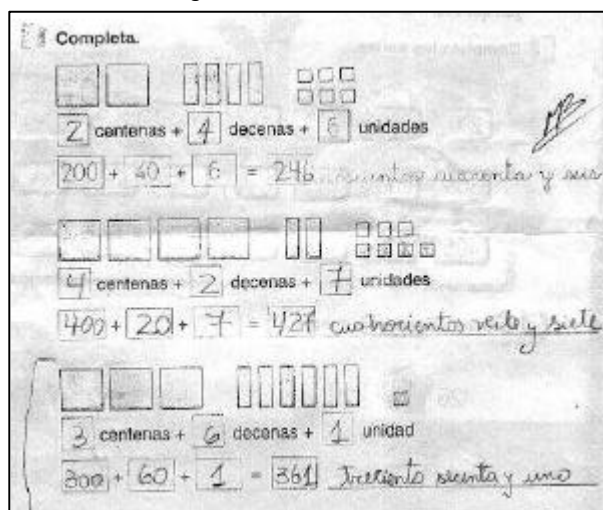 Completa.
2 centenas + 4 decenas + 6 unidades
200 + 40 + 6 = 246 cuarenta y seis
4 centenas + 2 decenas + 7 unidades
400 + 20 + 7 = 427 cuatrocientos veite y siete
3 centenas + 6 decenas + 1 unidad
300 + 60 + 1 = 361 y uno